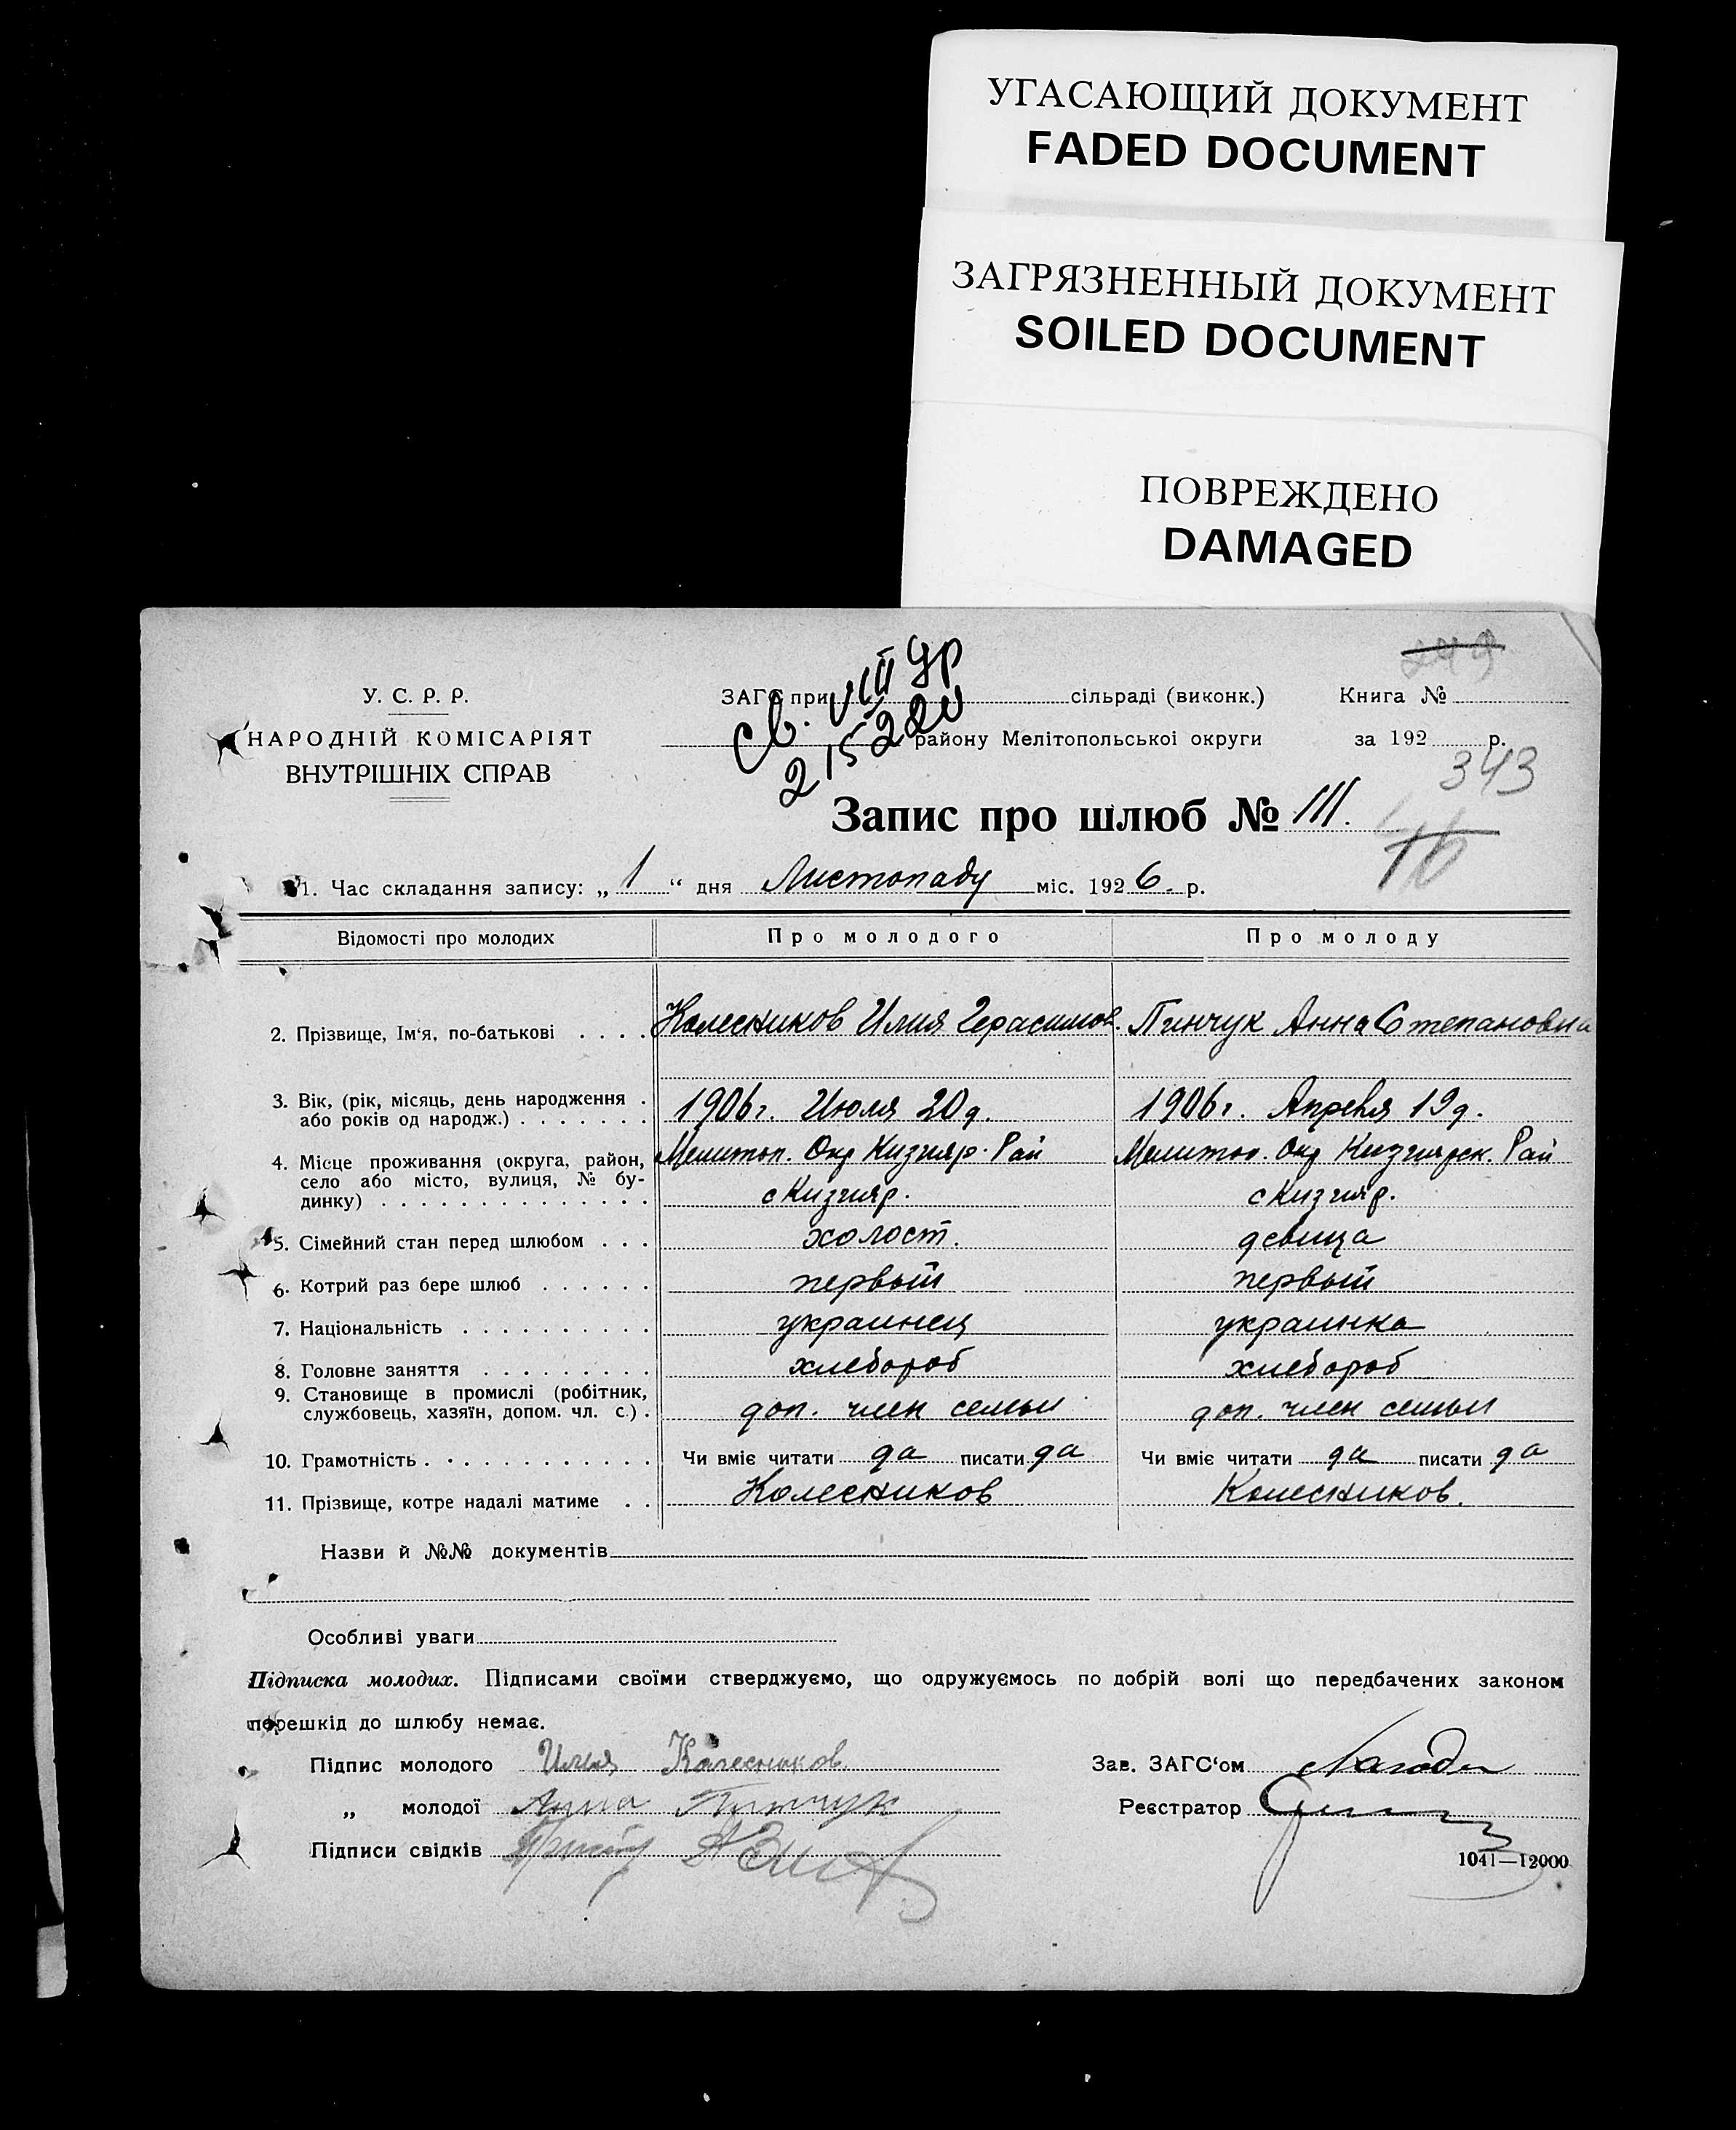 УГАСАЮЩИЙ ДОКУМЕНТ
FADED DOCUMENT
ЗАГРЯЗНЕННЫЙ ДОКУМЕНТ
SOILED DOCUMENT
ПОВРЕЖДЕНО
DAMAGED
249
У. С. Р. Р.
НАРОДНІЙ КОМІСАРІЯТ
ВНУТРІШНІХ СПРАВ
ЗАГС при сільраді (виконк.)
району Мелітопольської округи
Св. VIII УР
215220
Книга №
за 192 р.
343
Запис про шлюб № 111.
1. Час складання запису: „ 1 “ дня Листопаду міс. 1926. р.
Відомості про молодих Про молодого Про молоду
2. Прізвище, Ім‘я, по-батькові . . . . Колесников Илия Герасимов. Пинчук Анна Степановна
3. Вік, (рік, місяць, день народження . або років од народж.) . . . . . . . 1906 г. Июля 20 д. 1906 г. Апреля 19 д.
4. Місце проживання (округа, район, Мелитоп. Окр Кизияр. Рай Мелитоп. Окр Кизиярск. Рай
село або місто, вулиця, № бу-
динку) . . . . . . . . . . . . . с Кизияр. с Кизияр.
5. Сімейний стан перед шлюбом . . . холост. девица
6. Котрий раз бере шлюб . . . . . . первый первый
7. Національність . . . . . . . . . . украинец украинка
8. Головне заняття . . . . . . . . . хлебороб хлебороб
9. Становище в промислі (робітник,
службовець, хазяїн, допом. чл. с.) . доп. член семьи доп. член семьи
10. Грамотність . . . . . . . . . . . . Чи вміє читати да писати да Чи вміє читати да писати да
11. Прізвище, котре надалі матиме . . Колесников Колесников.
Назви й №№ документів
Особливі уваги
Підписка молодих. Підписами своїми стверджуємо, що одружуємось по добрій волі що передбачених законом
перешкід до шлюбу немає.
Підпис молодого Илия Колесников. Зав. ЗАГС‘ом
„ молодої Анна Пинчук Реєстратор
Підписи свідків
1041—12000